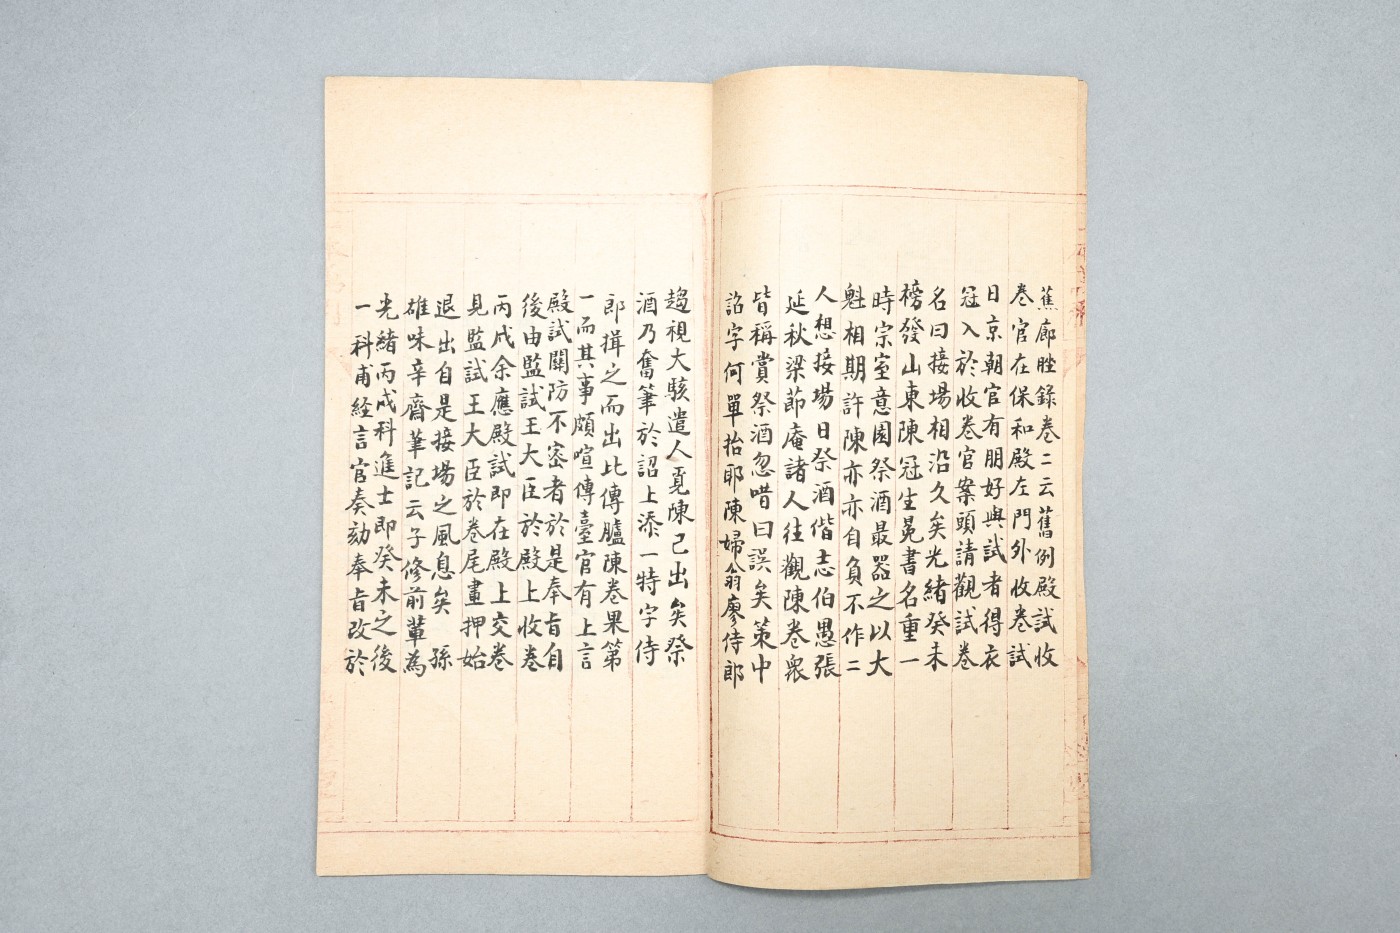 蕉廊脞錄卷二云舊例殿試收
卷官在保和殿左門外收卷試
日京朝官有朋好與試者得衣
冠入於收卷官案頭請觀試卷
名曰接場相沿久矣光緒癸未
榜發山東陳冠生冕書名重一
時宗室意園祭酒最器之以大
魁相期許陳亦亦自負不作二
人想接場日祭酒偕志伯愚張
延秋梁節庵諸人往觀陳卷眾
皆稱賞祭酒忽唶曰誤矣策中
詔字何單抬耶陳婦翁廖侍郎
趨視大駭遣人覓陳已出矣祭
酒乃奮筆於詔上添一特字侍
郎揖之而出比傳臚陳卷果第
一而其事頗喧傳臺官有上言
殿試關防不密者於是奉旨自
後由監試王大臣於殿上收卷
丙戌余應殿試即在殿上交卷
見監試王大臣於卷尾畫押始
退出自是接場之風息矣 孫
雄味辛齋筆記云子修前輩為
光緒丙戌科進士即癸未之後
一科甫經言官奏劾奉旨改於